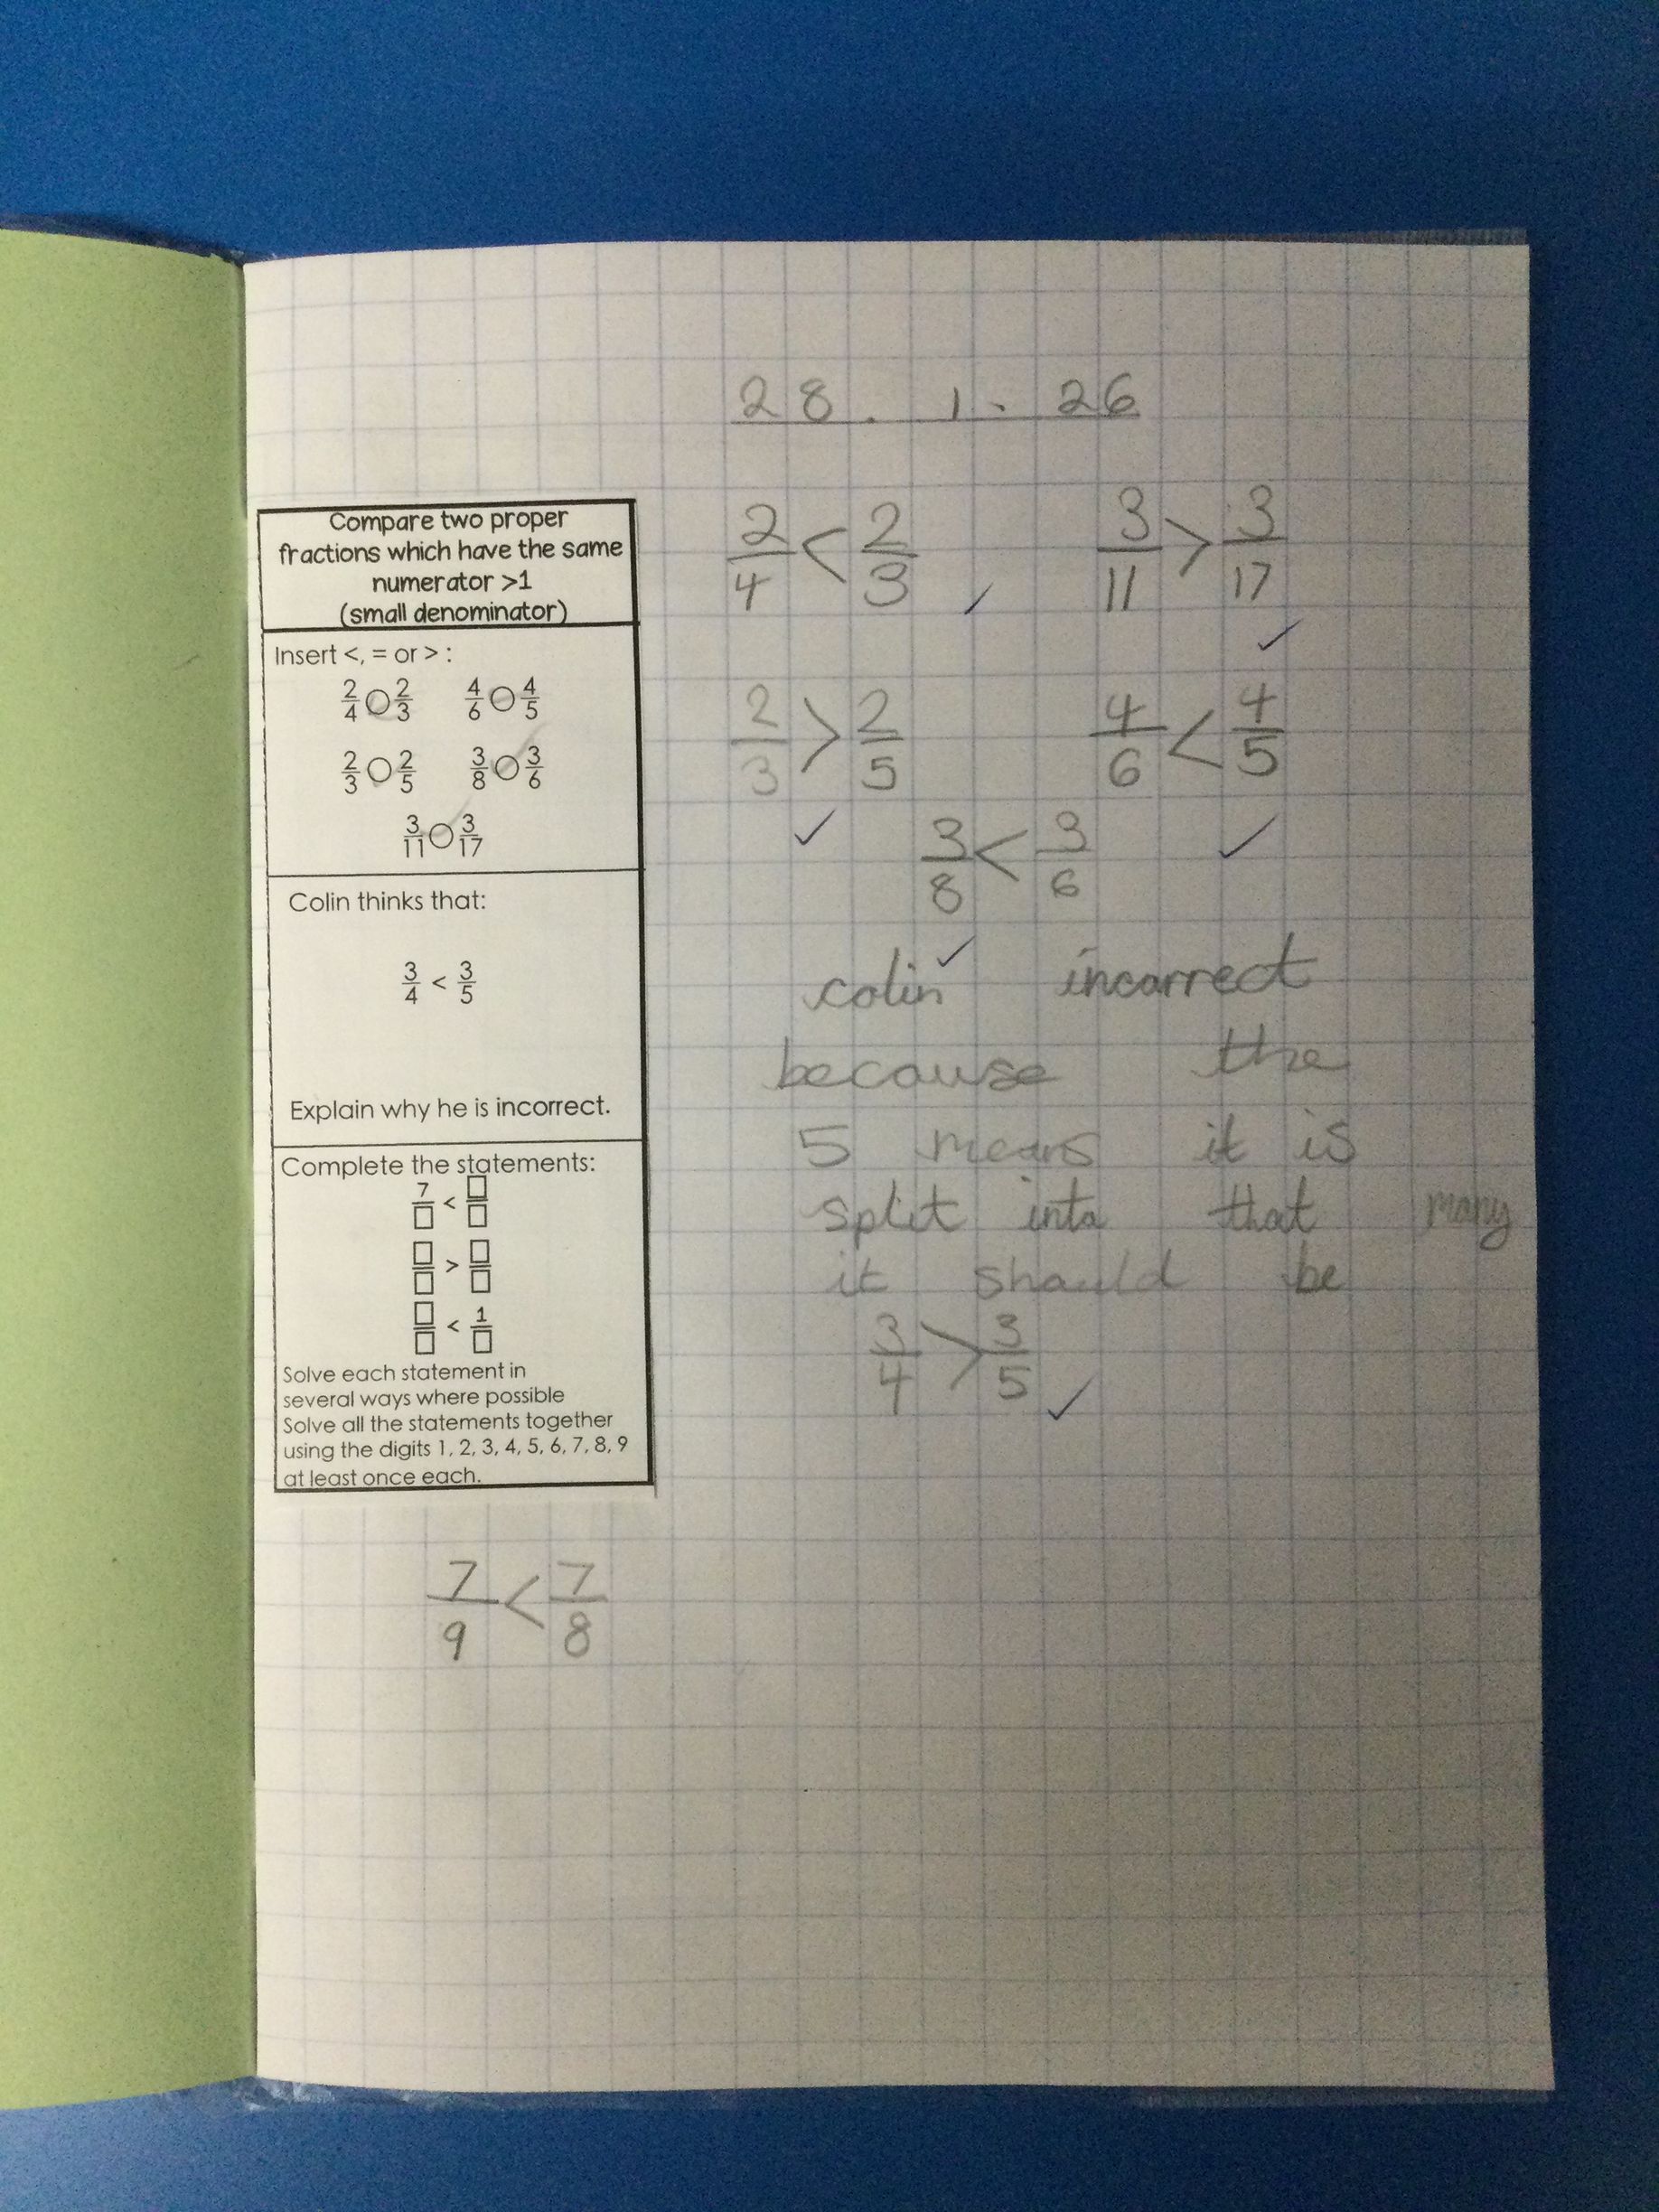 28 . 1 . 26
Compare two proper
fractions which have the same
numerator >1
(small denominator)
Insert <, = or > :
2/4 ○ 2/3 4/6 ○ 4/5
2/3 ○ 2/5 3/8 ○ 3/6
3/11 ○ 3/17
Colin thinks that:
3/4 < 3/5
Explain why he is incorrect.
Complete the statements:
7/□ < □/□
□/□ > □/□
□/□ < 1/□
Solve each statement in
several ways where possible
Solve all the statements together
using the digits 1, 2, 3, 4, 5, 6, 7, 8, 9
at least once each.
7/9 < 7/8
2/4 < 2/3 ✓ 3/11 > 3/17 ✓
2/3 > 2/5 ✓ 4/6 < 4/5 ✓
3/8 < 3/6 ✓
colin incorrect
because the
5 means it is
split into that many
it should be
3/4 > 3/5 ✓